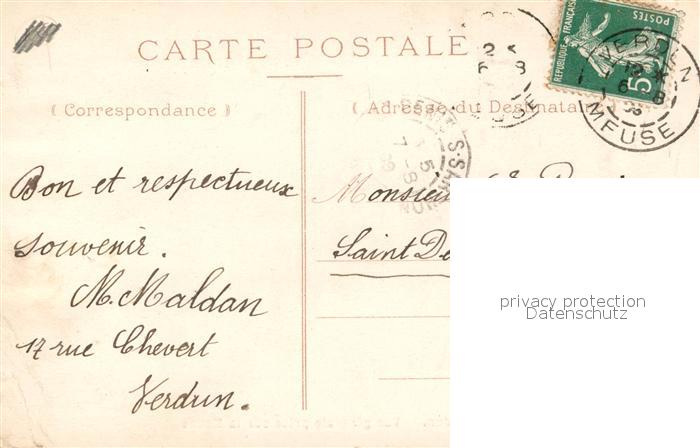 CARTE POSTALE
( Correspondance )
Bon et respectueux
souvenir.
M. Maldan
17 rue Chevert
Verdun.
( Adresse du Destinatai
Monsieur
Saint De
REPUBLIQUE FRANÇAISE
POSTES
5
VERDUN
MEUSE
privacy protection
Datenschutz